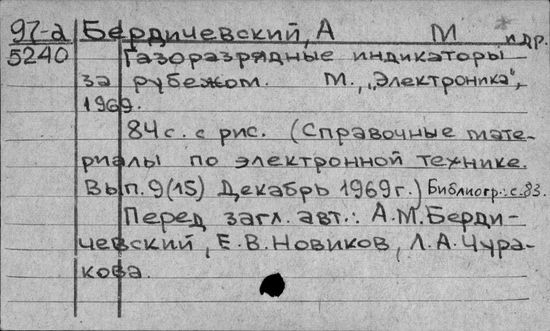 97-2 Бердичевский, А М и др.
5240 Газоразрядные индикаторы
за рубежом. М., „Электроника",
1969.
84 с. с рис. (Справочные мате-
риалы по электронной технике.
Вып. 9(15) Декабрь 1969 г.) Библиогр.: с. 83.
Перед загл. авт.: А.М. Берди-
чевский, Е.В. Новиков, Л.А. Чура-
кова.